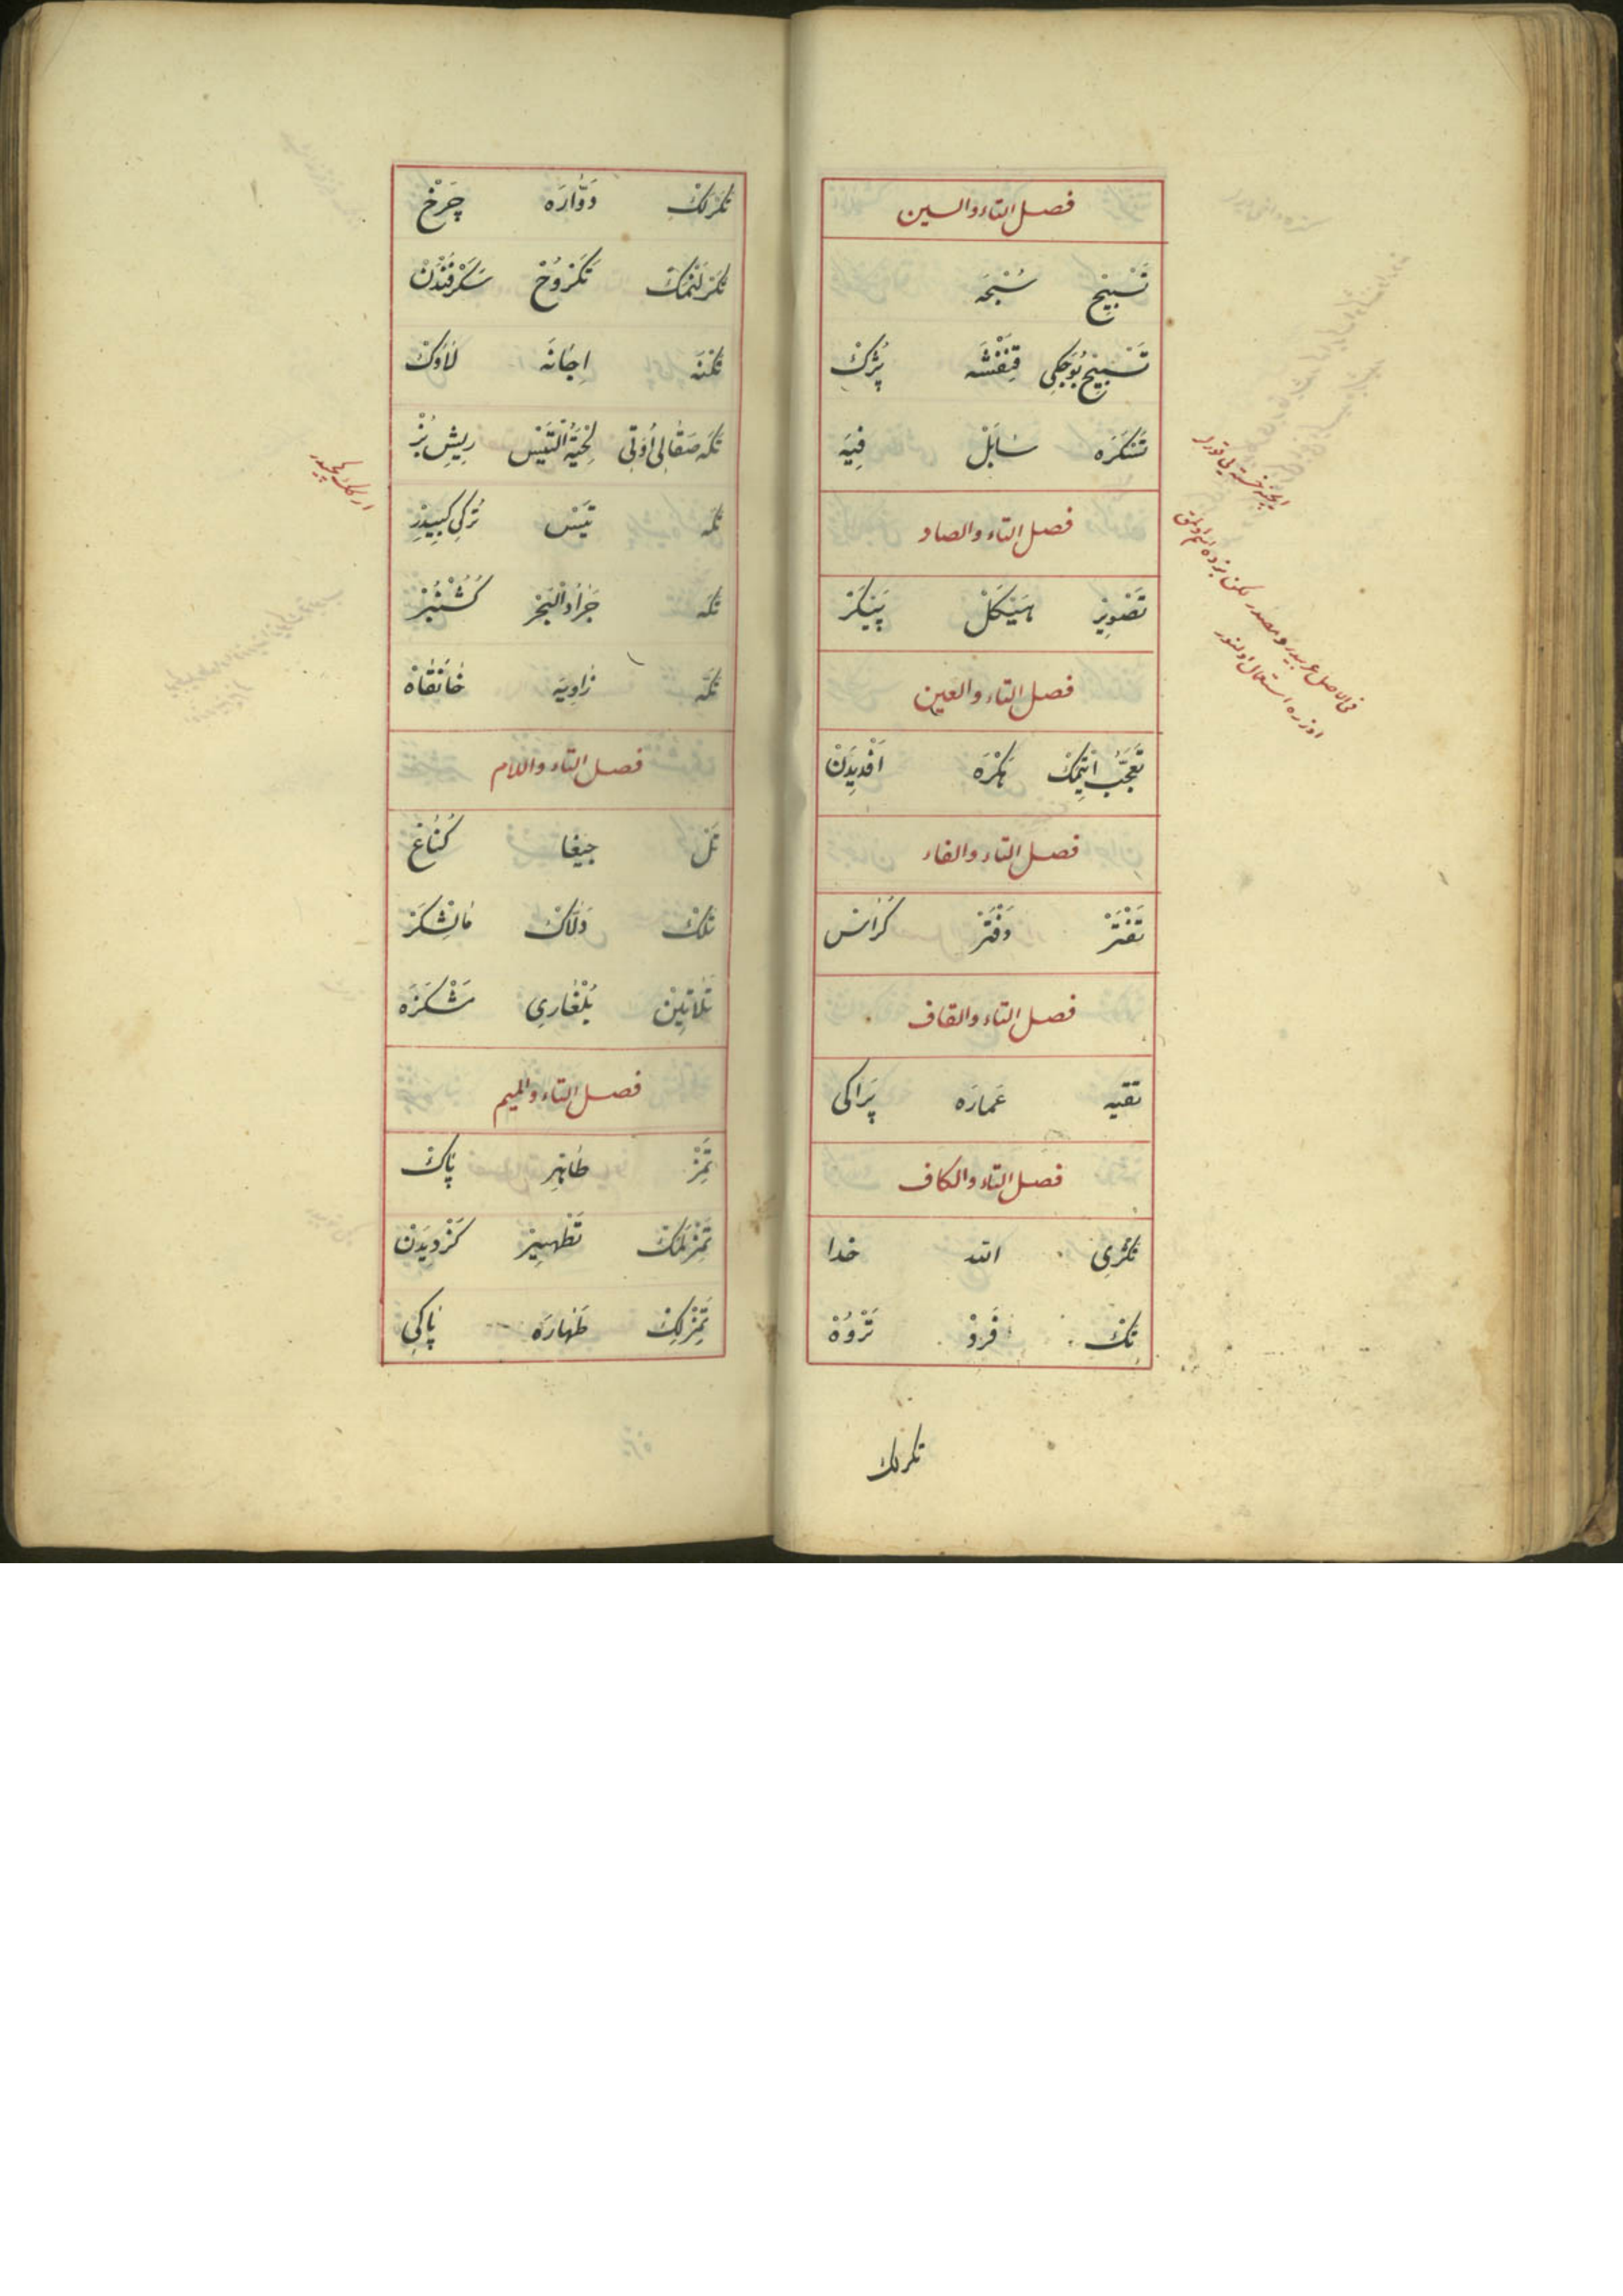 فصل التاء والسين
تَسْبِيحْ سُبْحَه
تَسْبِيحْ بُوجَكِي قِنْفْشَه پُژَكْ
تَسْكَرَه سَابَلْ فِيَه
فصل التاء والصاد
تَصْوِيرْ هَيْكَلْ پَيْكَرْ
فصل التاء والعين
تَعَجُّبْ اتِيمَكْ هَكْرَه اَفْدِيدَنْ
فصل التاء والفاء
تَفْتَرْ دَفْتَرْ كُرَّاسْ
فصل التاء والقاف
تقيه عَمارَه پَراكى
فصل التاء والكاف
تَكْرِي الله خدا
تَكْ فَرْدْ تَرْوُهْ
تكرلك
تَكَرْلَكْ دَوَّارَه چَرْخْ
تَكَرْلَنْمَكْ تَكَرْوُحْ سَكَرْفَنْدَنْ
تَكْنَه اِجَّانَه لَاوَكْ
تَكَه صَقَالِى اُوتِى لِحْيَةُ التَّيْسْ رِيشِ بُزْ
تَكَه تَيْسْ تُركِى كِبِيدِرْ
تَكَه جَرَادُ الْبَحْرْ
تَكْيَه زَاوِيَه خَانَقَاهْ
فصل التاء واللام
تَلْ جِيغَا كُنَاغْ
تَلَّاكْ دَلَّاكْ مَالِشْكَرْ
تَلَاتِينْ بُلْغَارِي مَشْكَرَه
فصل التاء والميم
تَمِزْ طَاهِرْ پَاكْ
تَمِزْلَمَكْ تَطْهِيرْ كَزْدِيدَنْ
تَمِزْلِكْ طَهَارَه پَاكِي